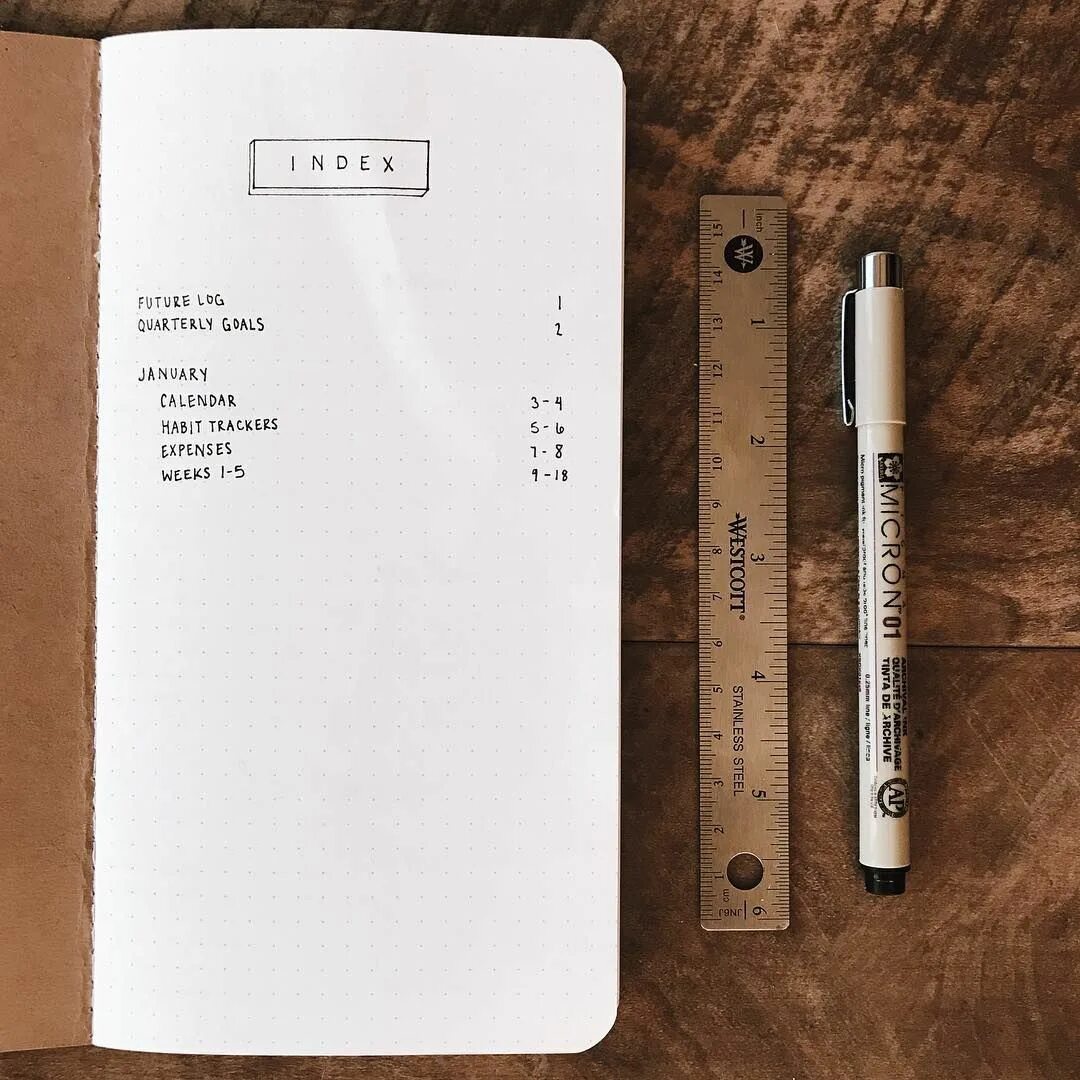 INDEX
FUTURE LOG 1
QUARTERLY GOALS 2
JANUARY
CALENDAR 3-4
HABIT TRACKERS 5-6
EXPENSES 7-8
WEEKS 1-5 9-18
inch
1
2
3
4
5
6
15
14
13
12
11
10
9
8
7
6
5
4
3
2
1
cm
WESTCOTT®
STAINLESS STEEL
JN6J
MICRON™ 01
ARCHIVAL INK
QUALITÉ D'ARCHIVAGE
TINTA DE ARCHIVE
0.25mm line / ligne / línea
AP